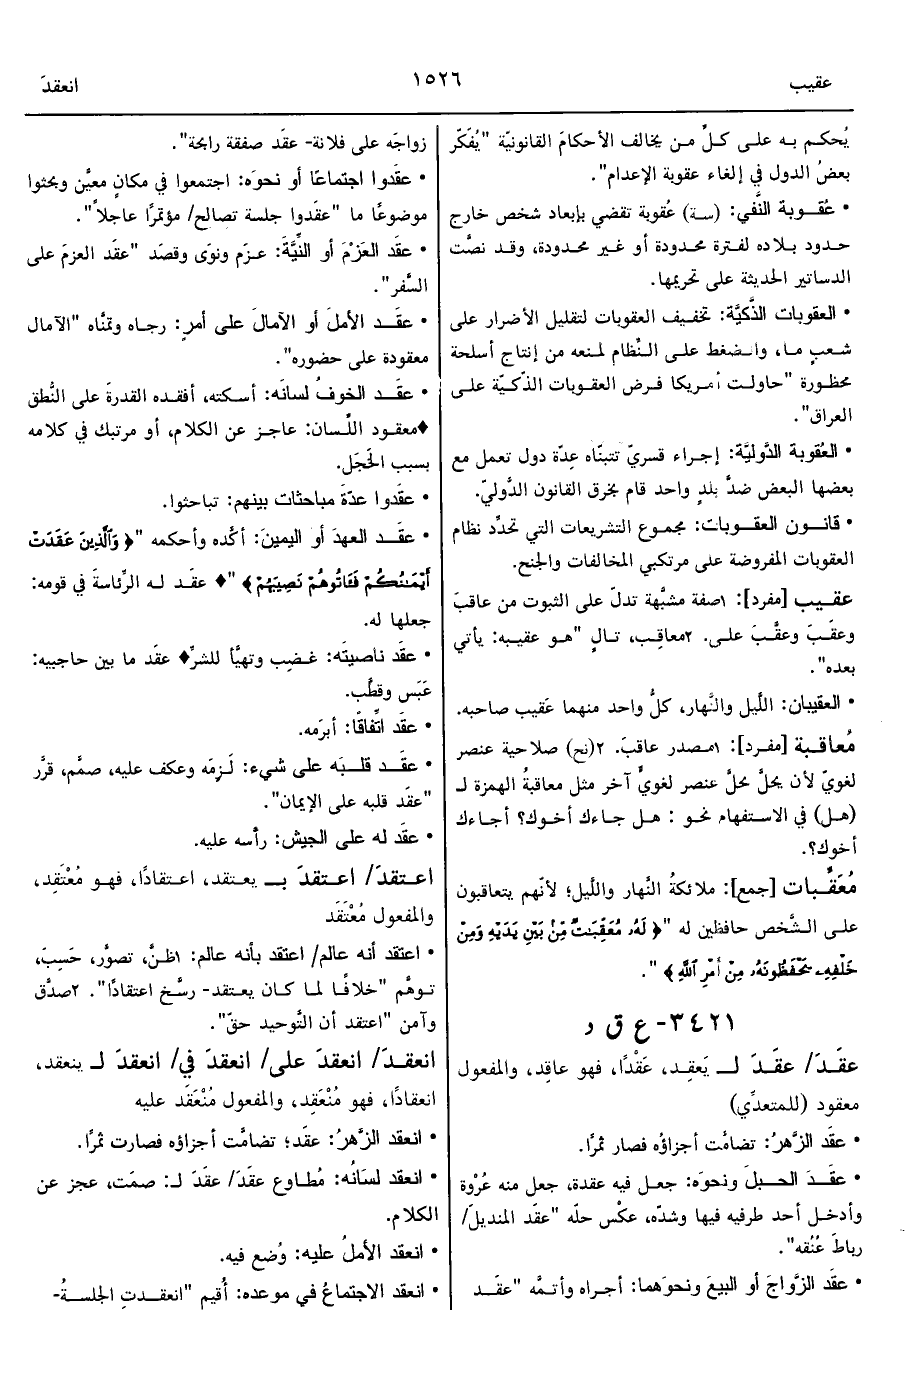 عقيب
١٥٢٦
انعقدَ
يُحكم به على كلّ من يخالف الأحكامَ القانونيّة "يُفَكّر
بعضُ الدول في إلغاء عقوبة الإعدام".
• عُقوبة النَّفي: (سة) عُقوبة تقضي بإبعاد شخص خارج
حدود بلاده لفترة محدودة أو غير محدودة، وقد نصَّت
الدساتير الحديثة على تحريمها.
• العقوبات الذَّكيَّة: تخفيف العقوبات لتقليل الأضرار على
شعبٍ ما، والضغط على النِّظام لمنعه من إنتاج أسلحة
محظورة "حاولت أمريكا فرض العقوبات الذّكيّة على
العراق".
• العُقوبة الدَّوليَّة: إجراء قسريّ تتبنّاه عِدّة دول تعمل مع
بعضها البعض ضدَّ بلدٍ واحد قام بخرق القانون الدُّوليّ.
• قانون العقوبات: مجموع التشريعات التي تحدِّد نظام
العقوبات المفروضة على مرتكبي المخالفات والجنح.
عقيب [مفرد]: ١صفة مشبَّهة تدلّ على الثبوت من عاقبَ
وعقَبَ وعقَّبَ على. ٢معاقِب، تالٍ "هو عقيبه: يأتي
بعده".
• العقيبان: اللَّيل والنَّهار، كلُّ واحد منهما عَقيب صاحبه.
مُعاقبة [مفرد]: ١مصدر عاقبَ. ٢(نح) صلاحية عنصر
لغويّ لأن يحلَّ محلَّ عنصر لغويٍّ آخر مثل معاقبةُ الهمزة لـ
(هل) في الاستفهام نحو : هل جاءك أخوك؟ أجاءك
أخوك؟.
مُعَقِّبات [جمع]: ملائكةُ النَّهار واللَّيل؛ لأنّهم يتعاقبون
على الشَّخص حافظين له "﴿ لَهُۥ مُعَقِّبَٰتٌ مِّنۢ بَيْنِ يَدَيْهِ وَمِنْ
خَلْفِهِۦ يَحْفَظُونَهُۥ مِنْ أَمْرِ ٱللَّهِ ﴾ ".
٣٤٢١- ع ق د
عقَدَ/ عقَدَ لـ يَعقِد، عَقْدًا، فهو عاقِد، والمفعول
معقود (للمتعدِّي)
• عقَد الزَّهرُ: تضامَّت أجزاؤُه فصار ثمرًا.
• عقَدَ الحبلَ ونحوَه: جعل فيه عقدة، جعل منه عُرْوة
وأدخل أحد طرفيه فيها وشدّه، عكْس حلّه "عقَد المنديلَ/
رباطَ عُنُقه".
• عقَد الزَّواجَ أو البيعَ ونحوَهما: أجراه وأتمَّه "عقَد
زواجَه على فلانة- عقَد صفقة رابحة".
• عقَدوا اجتماعًا أو نحوَه: اجتمعوا في مكانٍ معيَّن وبحثوا
موضوعًا ما "عقَدوا جلسة تصالح/ مؤتمرًا عاجلاً".
• عقَد العَزْمَ أو النِّيَّةَ: عزم ونوَى وقصَد "عقَد العزمَ على
السَّفر".
• عقَد الأملَ أو الآمالَ على أمرٍ: رجاه وتمنَّاه "الآمال
معقودة على حضوره".
• عقَد الخوفُ لسانَه: أسكته، أفقده القدرةَ على النُّطق
♦معقود اللِّسان: عاجز عن الكلام، أو مرتبك في كلامه
بسبب الخَجَل.
• عقَدوا عدّةَ مباحثات بينهم: تباحثوا.
• عقَد العهدَ أو اليمينَ: أكّده وأحكمه "﴿ وَٱلَّذِينَ عَقَدَتْ
أَيْمَٰنُكُمْ فَـَٔاتُوهُمْ نَصِيبَهُمْ ﴾ "♦ عقَد له الرِّئاسةَ في قومه:
جعلها له.
• عقَد ناصيتَه: غضِب وتهيَّأ للشرِّ♦ عقَد ما بين حاجبيه:
عَبَس وقطَّب.
• عقَد اتِّفاقًا: أبرمَه.
• عقَد قلبَه على شيء: لَزِمَه وعكف عليه، صمَّم، قرَّر
"عقَد قلبه على الإيمان".
• عقَد له على الجيش: رأسه عليه.
اعتقدَ/ اعتقدَ بـ يعتقد، اعتقادًا، فهو مُعْتَقِد،
والمفعول مُعْتَقَد
• اعتقد أنه عالم/ اعتقد بأنه عالم: ١ظنَّ، تصوَّر، حَسِبَ،
توهَّم "خلافًا لما كان يعتقد- رسَّخ اعتقادًا". ٢صدَّق
وآمن "اعتقد أن التَّوحيد حقّ".
انعقدَ/ انعقدَ على/ انعقدَ في/ انعقدَ لـ ينعقد،
انعقادًا، فهو مُنْعَقِد، والمفعول مُنْعَقَد عليه
• انعقد الزَّهرُ: عقَد؛ تضامَّت أجزاؤه فصارت ثمرًا.
• انعقد لسَانُه: مُطاوع عقَدَ/ عقَدَ لـ: صمَت، عجز عن
الكلام.
• انعقد الأملُ عليه: وُضع فيه.
• انعقد الاجتماعُ في موعده: أُقيم "انعقدتِ الجلسةُ-